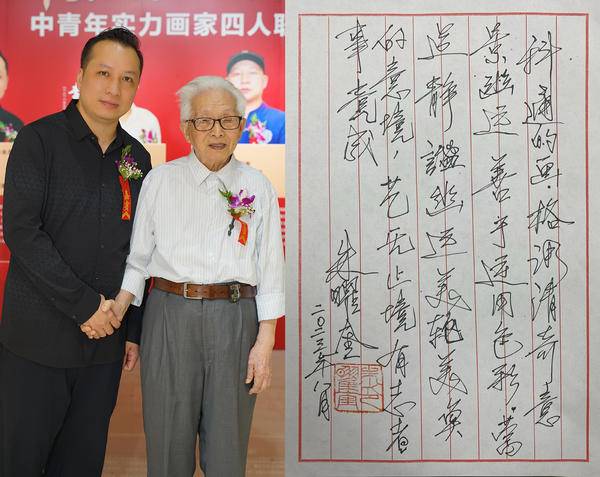 中青年实力画家四人联
科的画,格调清奇意
景幽远 善于运用色彩,营
造静谧幽远美轮美奂
的意境,艺无止境有志者
事竟成
朱曜奎
二〇二三年八月